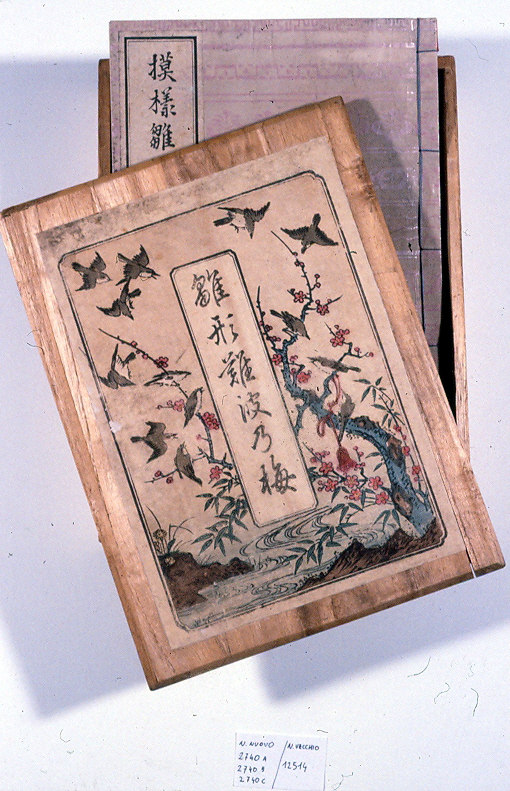 摸様雛
雛形難波乃梅
N. NUOVO
2740 A
2740 B
2740 C
N. VECCHIO
12514